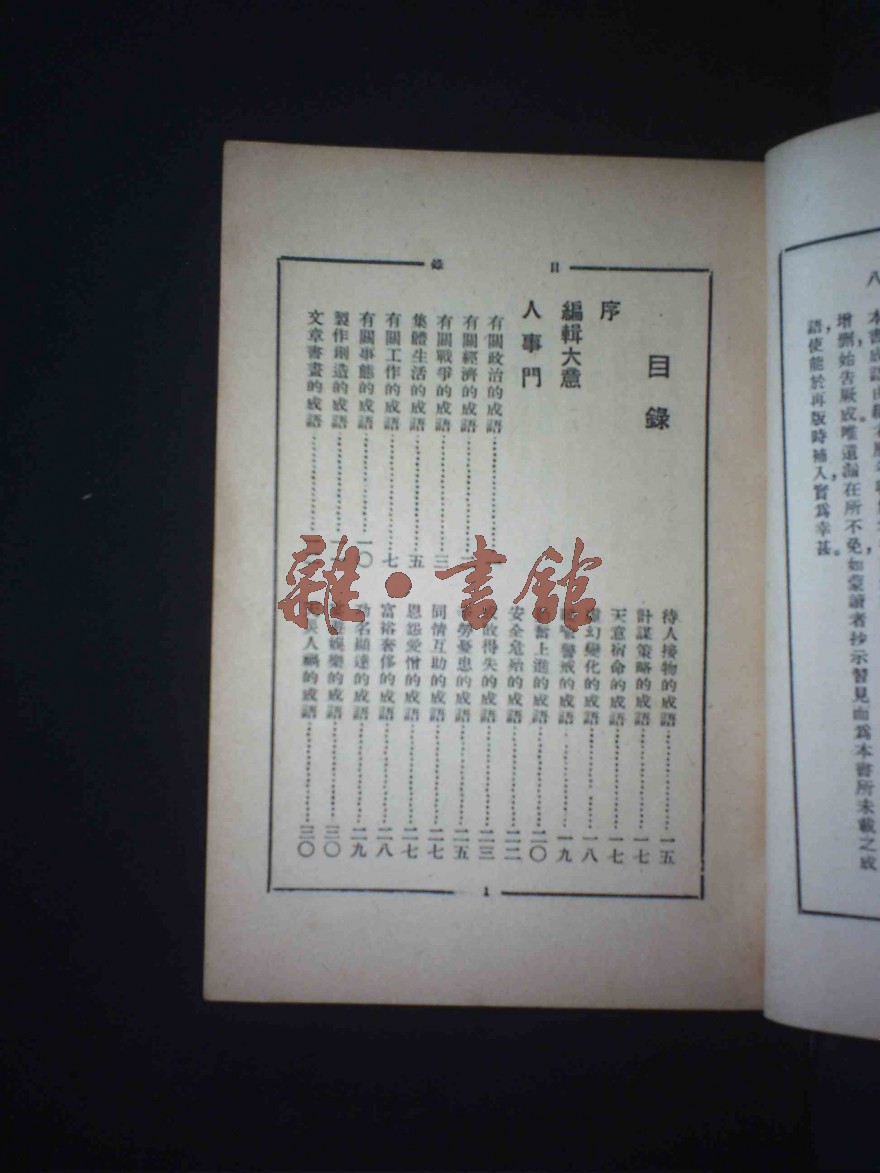 八
增刪始告厥成唯遺漏在所不免如蒙讀者抄示習見而爲本書所未載之成
語，使能於再版時補入，實爲幸甚。
目錄
目錄
序
編輯大意
人事門
有關政治的成語
有關經濟的成語
有關戰爭的成語……三
集體生活的成語……五
有關工作的成語……七
有關事態的成語……一〇
製作創造的成語
文章書畫的成語
待人接物的成語……一五
計謀策略的成語……一七
天意宿命的成語……一七
幻變化的成語……一八
警戒的成語……一九
奮上進的成語……二〇
安全危殆的成語……二二
故得失的成語……二三
勞憂患的成語……二五
同情互助的成語……二七
恩怨愛憎的成語……二七
富裕奢侈的成語……二八
功名顯達的成語……二九
娛樂的成語……三〇
人禍的成語……三〇
1
雜·書館